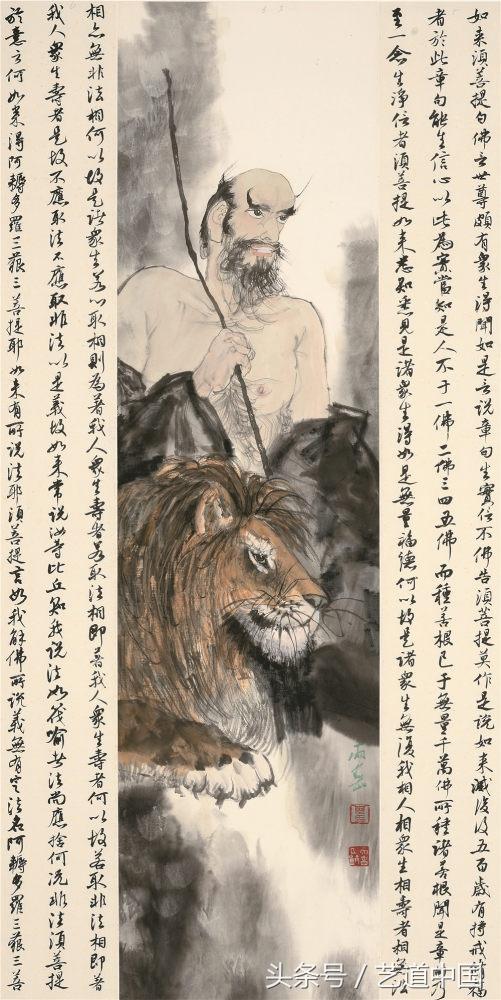 如来須菩提白佛言世尊頗有衆生得聞如是言说章句生實信不佛告須菩提莫作是说如来滅後後五百歲有持戒脩福
者於此章句能生信心以此為實當知是人不于一佛二佛三四五佛而種善根已于無量千萬佛所種諸善根聞是章句乃
至一念生净信者須菩提如来悉知悉見是諸衆生得如是無量福德何以故是諸衆生無復我相人相衆生相壽者相無法
相亦無非法相何以故是諸衆生若心取相則為著我人衆生壽者若取法相即著我人衆生壽者何以故若取非法相即著
我人衆生壽者是故不應取法不應取非法以是義故如来常说汝等比丘知我说法如筏喻者法尚應捨何况非法須菩提
於意云何如来得阿耨多羅三藐三菩提耶如来有所说法耶須菩提言如我解佛所说義無有定法名阿耨多羅三藐三菩
头条号 / 艺道中国